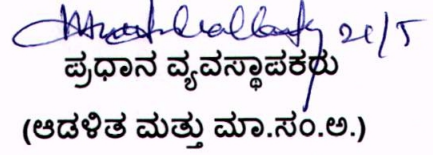 21/5
ಪ್ರಧಾನ ವ್ಯವಸ್ಥಾಪಕರು
(ಆಡಳಿತ ಮತ್ತು ಮಾ.ಸಂ.ಅ.)